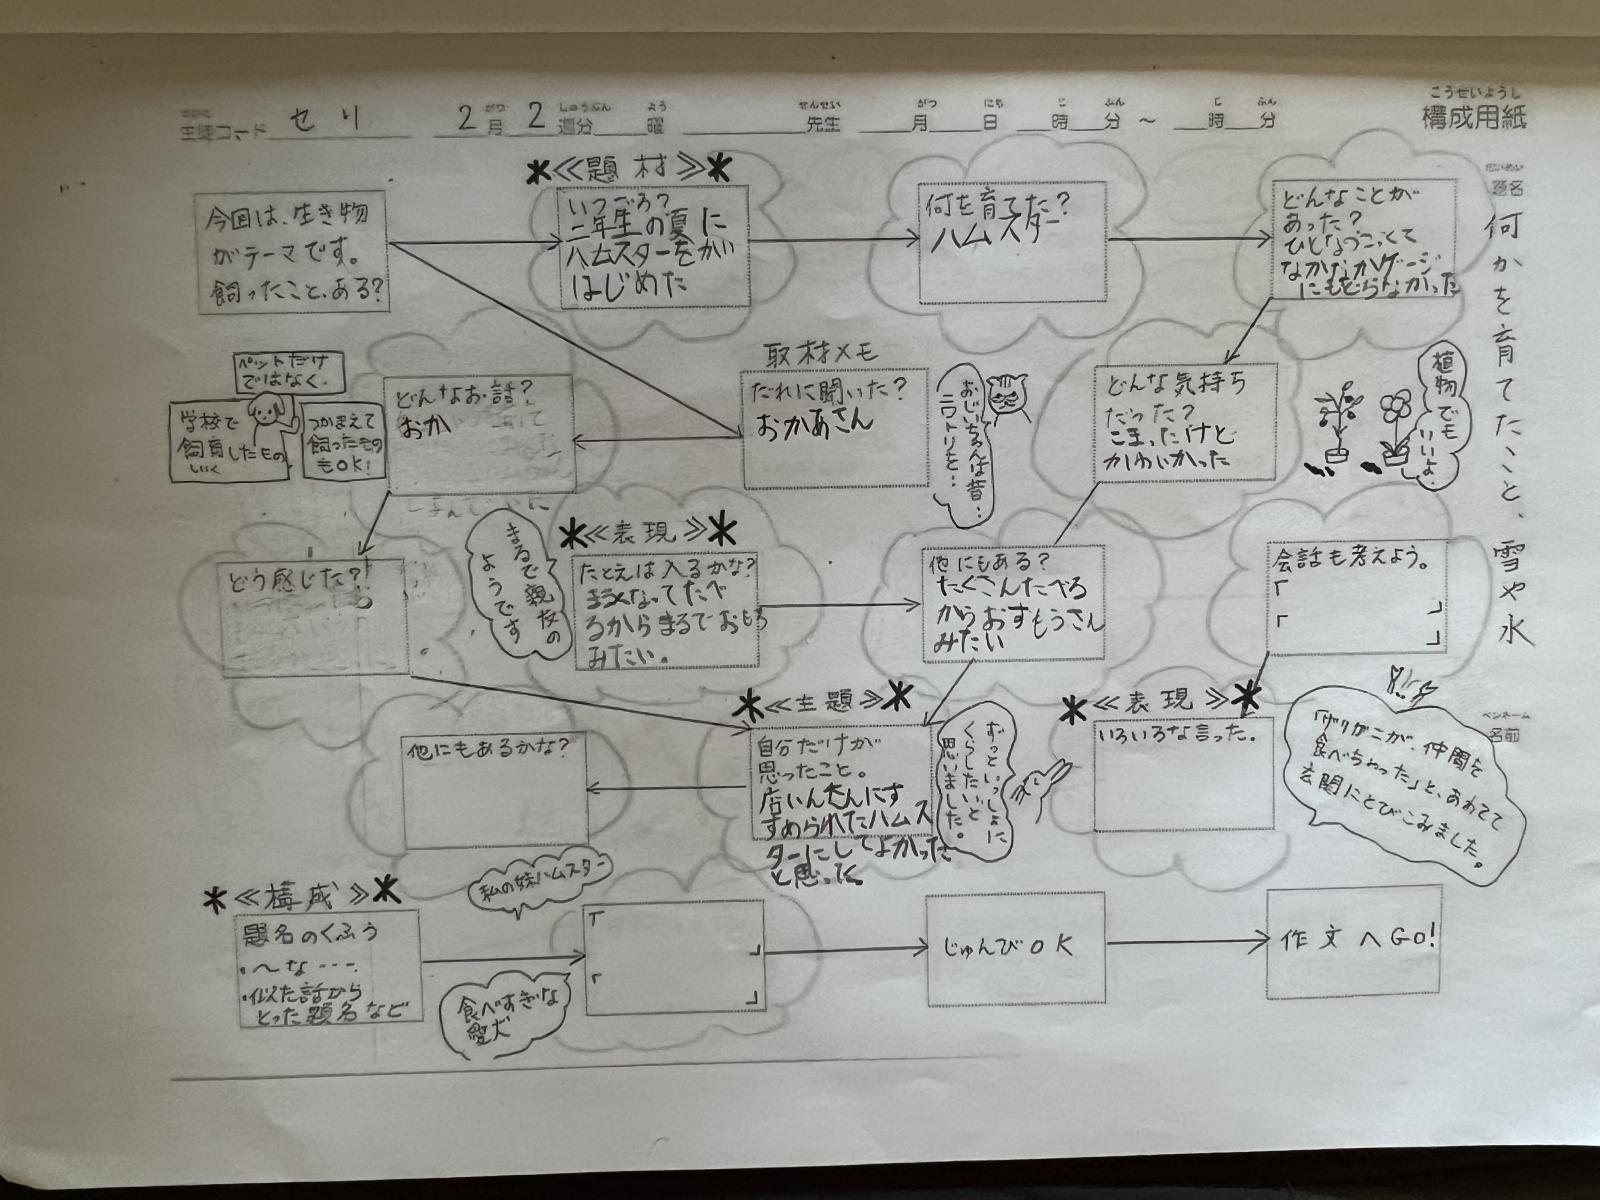 こうせいようし
構成用紙
生徒コード セリ 2月 2週分 曜 先生 月 日 時 分 〜 時 分
がつ しゅうぶん よう せんせい がつ にち じ ふん じ ふん
だいめい
題名
何かを育てたこと、雪や氷
ペンネーム
名前
今回は、生き物
がテーマです。
飼ったこと、ある?
≪題材≫
いつごろ?
二年生の夏に
ハムスターをかい
はじめた
何を育てた?
ハムスター
どんなことが
あった?
ひとなつこくて
なかなかゲージ
にもどらなかった
ペットだけ
ではなく、
学校で
飼育したもの
いく
つかまえて
飼ったもの
もOK!
どんなお話?
おか
取材メモ
だれに聞いた?
おかあさん
おじいちゃんは昔‥
ニワトリを‥
どんな気持ち
だった?
こまったけど
かわいかった
植物でも
いいよ。
どう感じた?
まるで親友の
ようです
≪表現≫
たとえは入るかな?
まるくなってたべ
るからまるでおもち
みたい。
他にもある?
たくさんたべる
からおすもうさん
みたい
会話も考えよう。
「
」
「
」
他にもあるかな?
≪主題≫
自分だけが
思ったこと。
店いんさんにす
すめられたハムス
ターにしてよかった
と思った。
ずっといっしょに
くらしたいと
思いました。
≪表現≫
いろいろな言った。
「ザリがニが、仲間を
食べちゃった」と、あわてて
玄関にとびこみました。
≪構成≫
題名のくふう
・〜な‥‥
・似た話から
とった題名など
私の妹ハムスター
食べすぎな
愛犬
「
」
「
」
じゅんびOK
作文へGO!